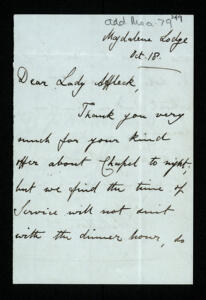 add Ms a. 79 49
Magdalene Lodge
Oct. 18.
Dear Lady Affleck,
Thank you very
much for your kind
offer about Chapel to night;
but we find the time of
Service will not suit
with the dinner hour, so